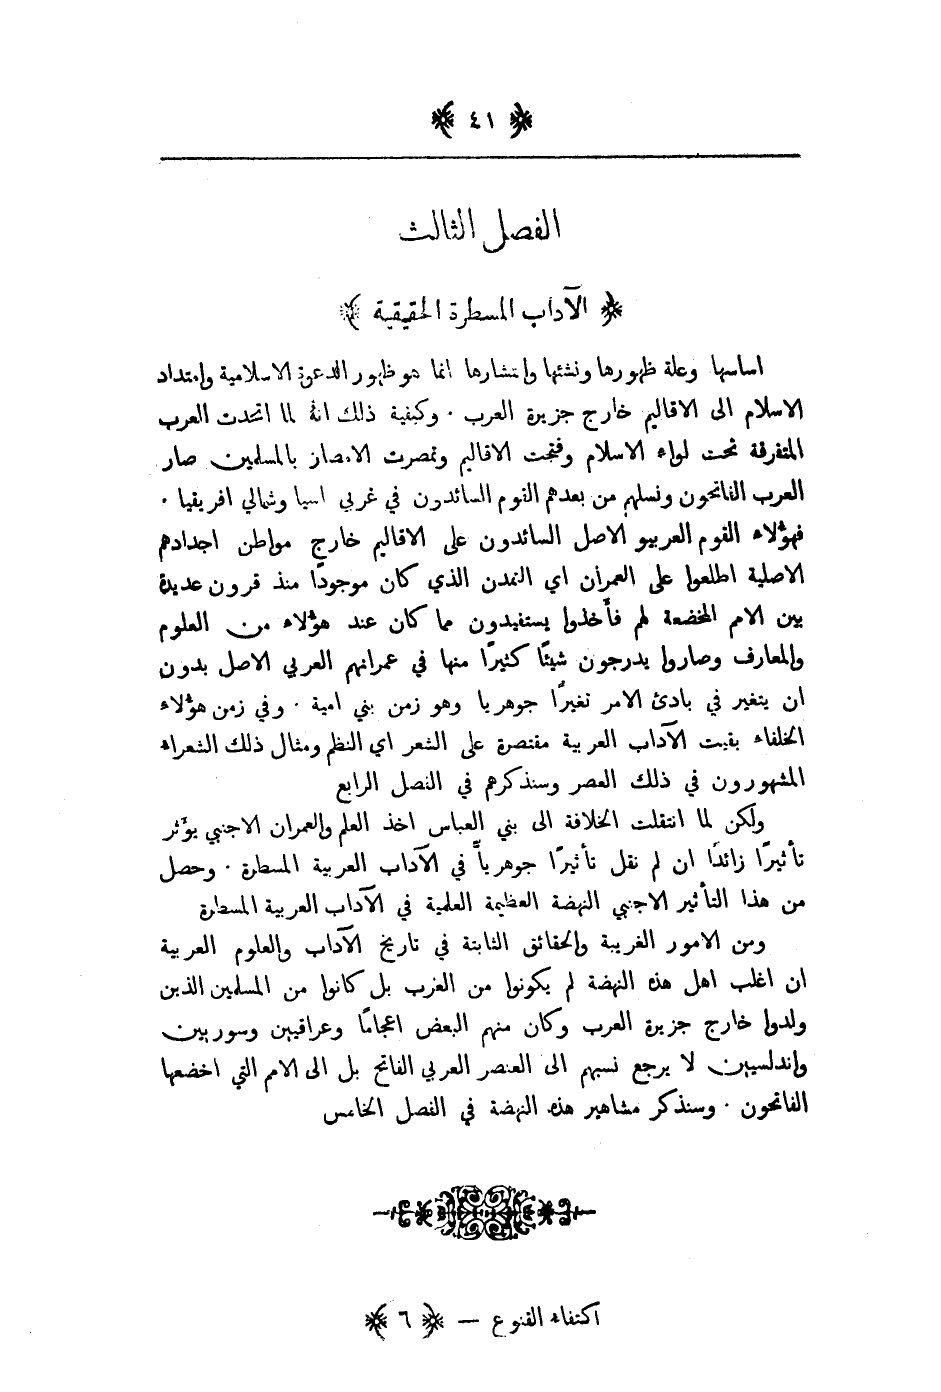 ٤١
الفصل الثالث
الآداب المسطرة الحقيقية
اساسها وعلة ظهورها ونشئها وانتشارها انما هو ظهور الدعوة الاسلامية وامتداد
الاسلام الى الاقاليم خارج جزيرة العرب ٠ وكيفية ذلك انهُ لما اتحدت العرب
المتفرقة تحت لواء الاسلام وفتحت الاقاليم وتمصرت الامصار بالمسلمين صار
العرب الفاتحون ونسلهم من بعدهم القوم السائدون في غربي اسيا وشمالي افريقيا ٠
فهؤلاء القوم العربيو الاصل السائدون على الاقاليم خارج مواطن اجدادهم
الاصلية اطلعوا على العمران اي التمدن الذي كان موجودًا منذ قرون عديدة
بين الامم المخضعة لهم فأخذوا يستفيدون مما كان عند هؤلاء من العلوم
والمعارف وصاروا يدرجون شيئًا كثيرًا منها في عمرانهم العربي الاصل بدون
ان يتغير في بادئ الامر تغيرًا جوهريا وهو زمن بني امية ٠ وفي زمن هؤلاء
الخلفاء بقيت الآداب العربية مقتصرة على الشعر اي النظم ومثال ذلك الشعراء
المشهورون في ذلك العصر وسنذكرهم في الفصل الرابع
ولكن لما انتقلت الخلافة الى بني العباس اخذ العلم والعمران الاجنبي يؤثر
تأثيرًا زائدًا ان لم نقل تأثيرًا جوهرياً في الآداب العربية المسطرة ٠ وحصل
من هذا التأثير الاجنبي النهضة العظيمة العلمية في الآداب العربية المسطرة
ومن الامور الغريبة والحقائق الثابتة في تاريخ الآداب والعلوم العربية
ان اغلب اهل هذه النهضة لم يكونوا من العرب بل كانوا من المسلمين الذين
ولدوا خارج جزيرة العرب وكان منهم البعض اعجامًا وعراقيين وسوريين
واندلسيين لا يرجع نسبهم الى العنصر العربي الفاتح بل الى الامم التي اخضعها
الفاتحون ٠ وسنذكر مشاهير هذه النهضة في الفصل الخامس
اكتفاء القنوع — ٦